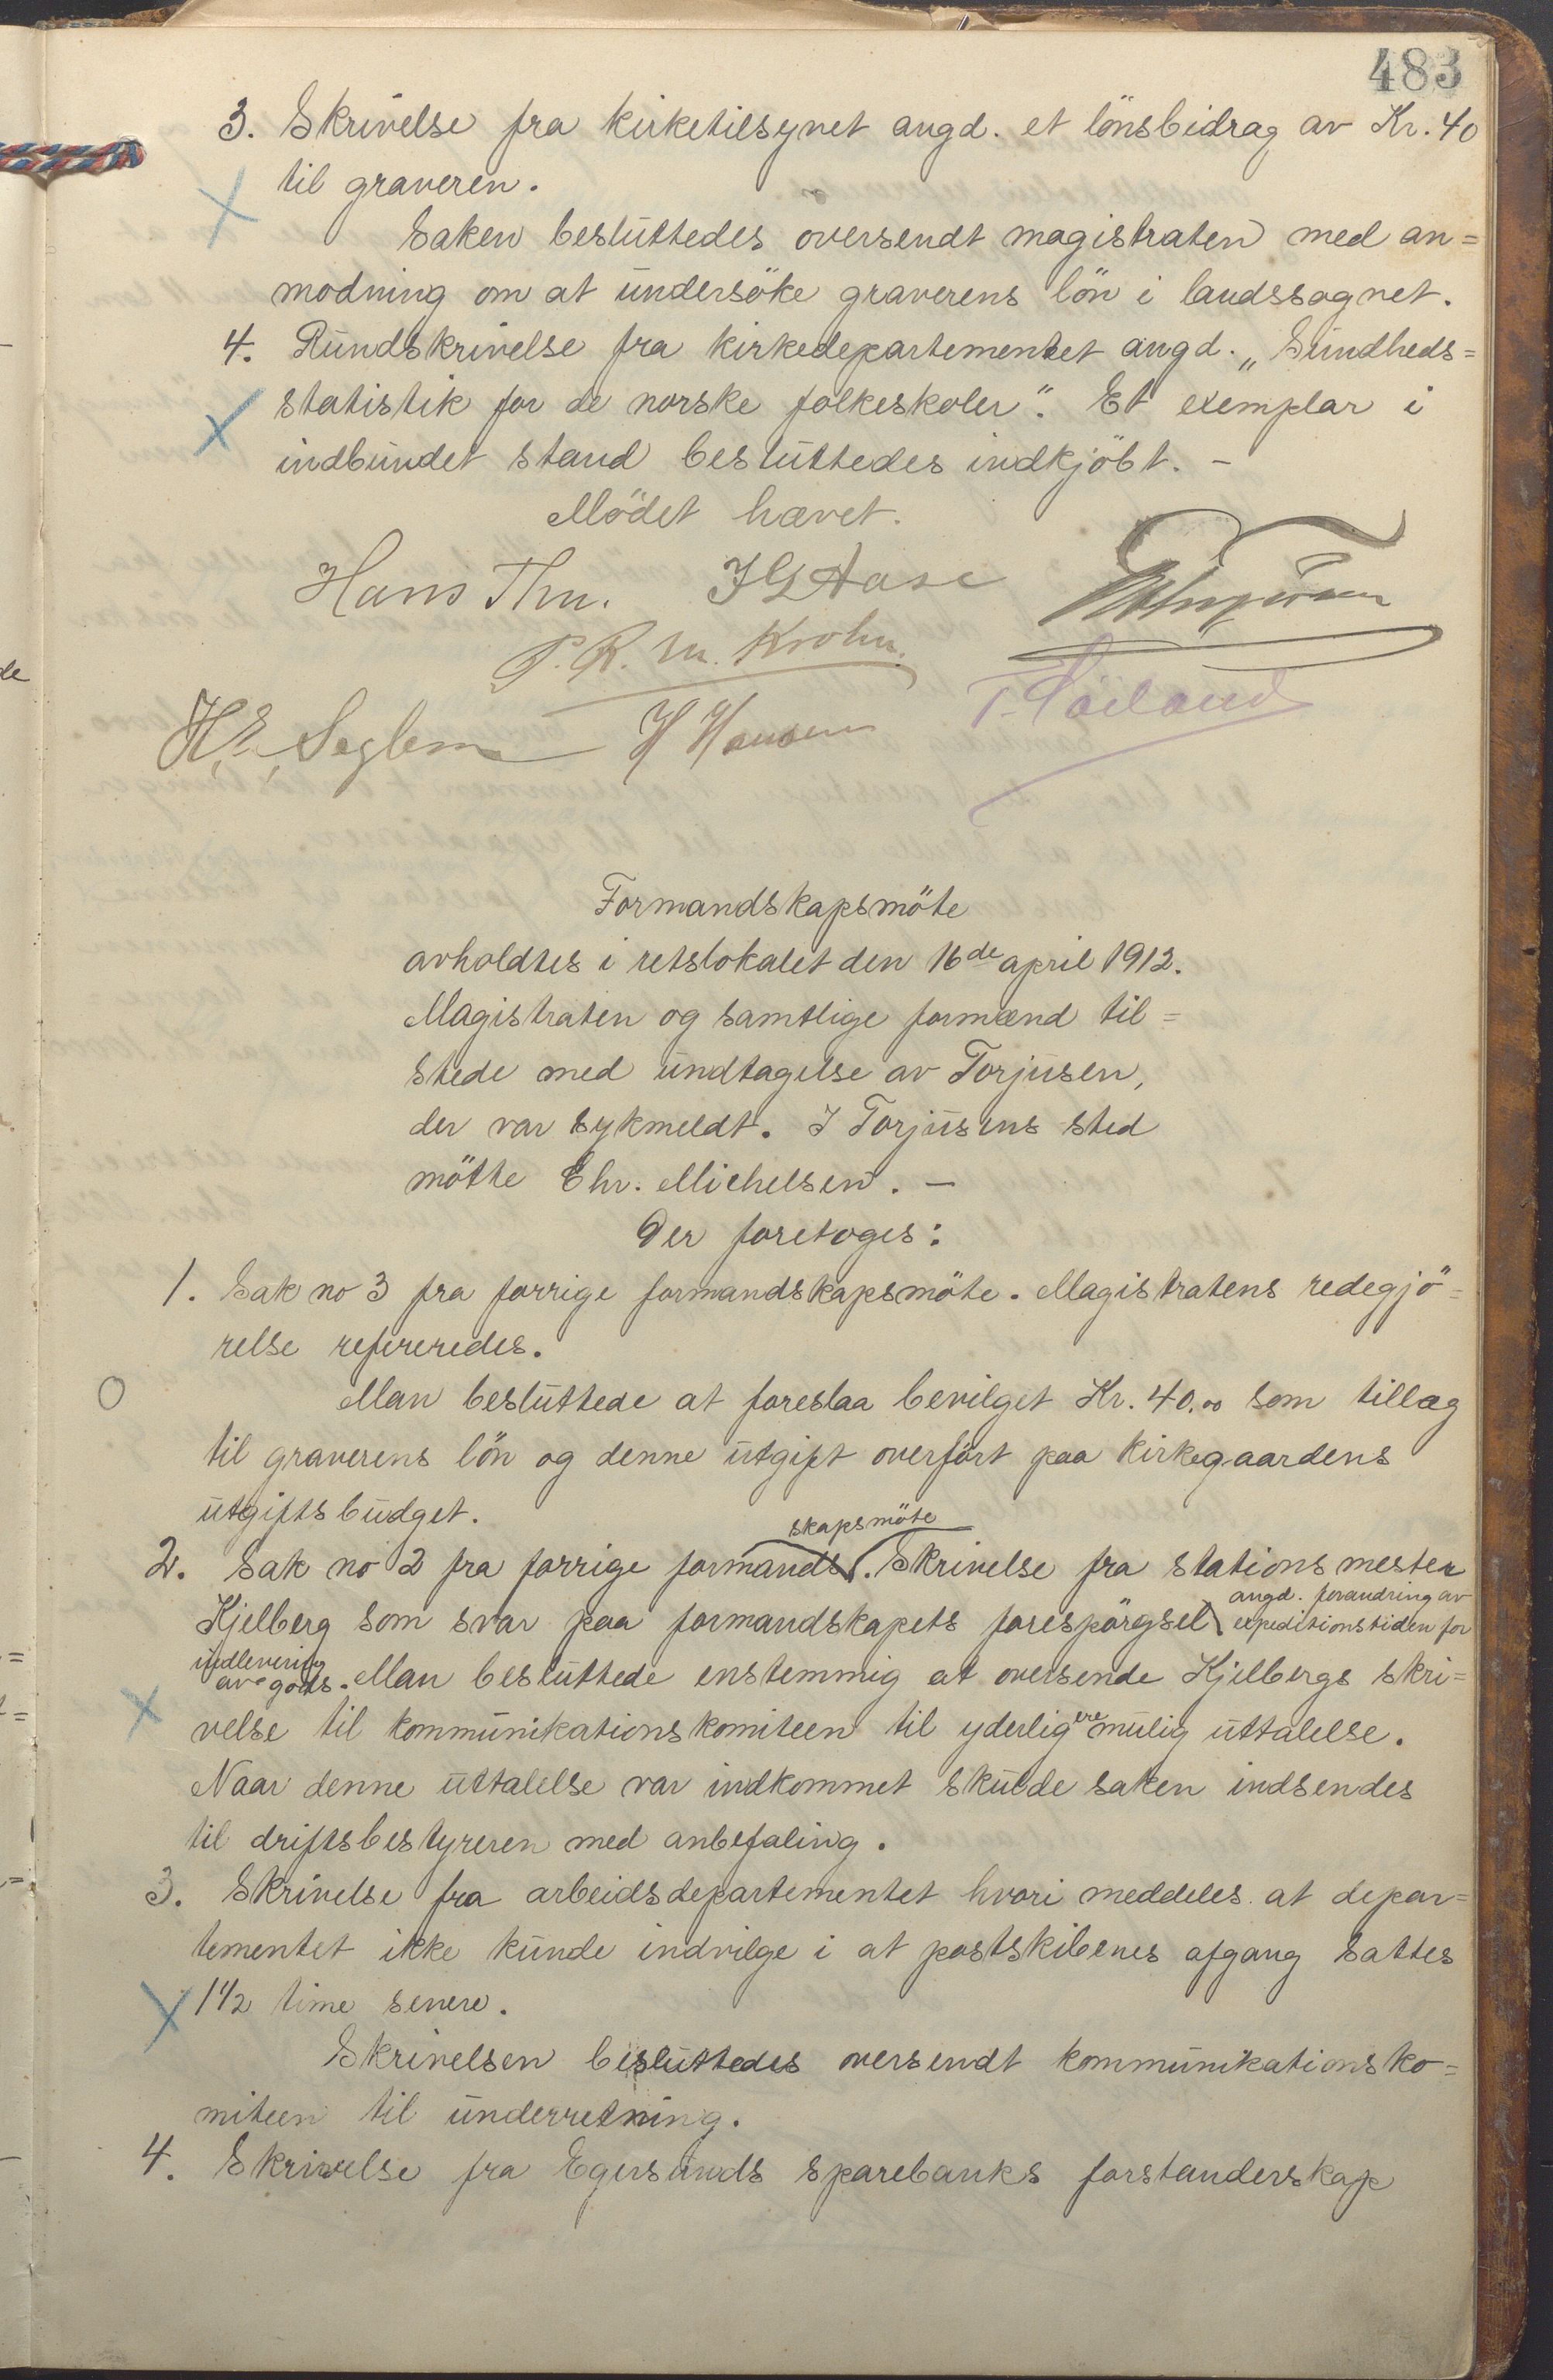 483
3. Skrivelse fra kirketilsynet angd. et lönsbidrag av Kr. 40
til graveren.
Saken besluttedes oversendt magistraten med an=
modning om at undersöke graverens lön i landssognet.
4. Rundskrivelse fra kirkedepartementet angd. „Sundheds=
statistik for de norske folkeskoler". Et exemplar i
indbundet stand besluttedes indkjöbt. -
Mödet hævet.
Hans Thu. J G Aase
P. R. M. Krohn.
H. E. Seglem H Hansen
Formandskapsmöte
avholdtes i retslokalet den 16de april 1912.
Magistraten og samtlige formænd til=
stede med undtagelse av Torjusen,
der var sykmeldt. I Torjusens sted
mötte Chr. Michelsen. —
Der foretoges:
1. Sak no 3 fra forrige formandskapsmöte. Magistratens redegjö=
relse refereredes.
Man besluttede at foreslaa bevilget Kr. 40.00 som tillæg
til graverens lön og denne utgift overfört paa kirkegaardens
utgiftsbudget.
skapsmöte
2. Sak no 2 fra forrige formands. Skrivelse fra stationsmester
angd. forandring av
Kjelberg som svar paa formandskapets forespörgsel expeditionstiden for
indlevering
av gods. Man besluttede enstemmig at oversende Kjelbergs skri=
velse til kommunikationskomiteen til yderligere mulig uttalelse.
Naar denne uttalelse var indkommet skulde saken indsendes
til driftsbestyreren med anbefaling.
3. Skrivelse fra arbeidsdepartementet hvori meddeles at depar=
tementet ikke kunde indvilge i at postskibenes afgang sattes
1 1/2 time senere.
Skrivelsen besluttedes oversendt kommunikationsko=
miteen til underretning.
4. Skrivelse fra Egersunds sparebanks forstanderskap